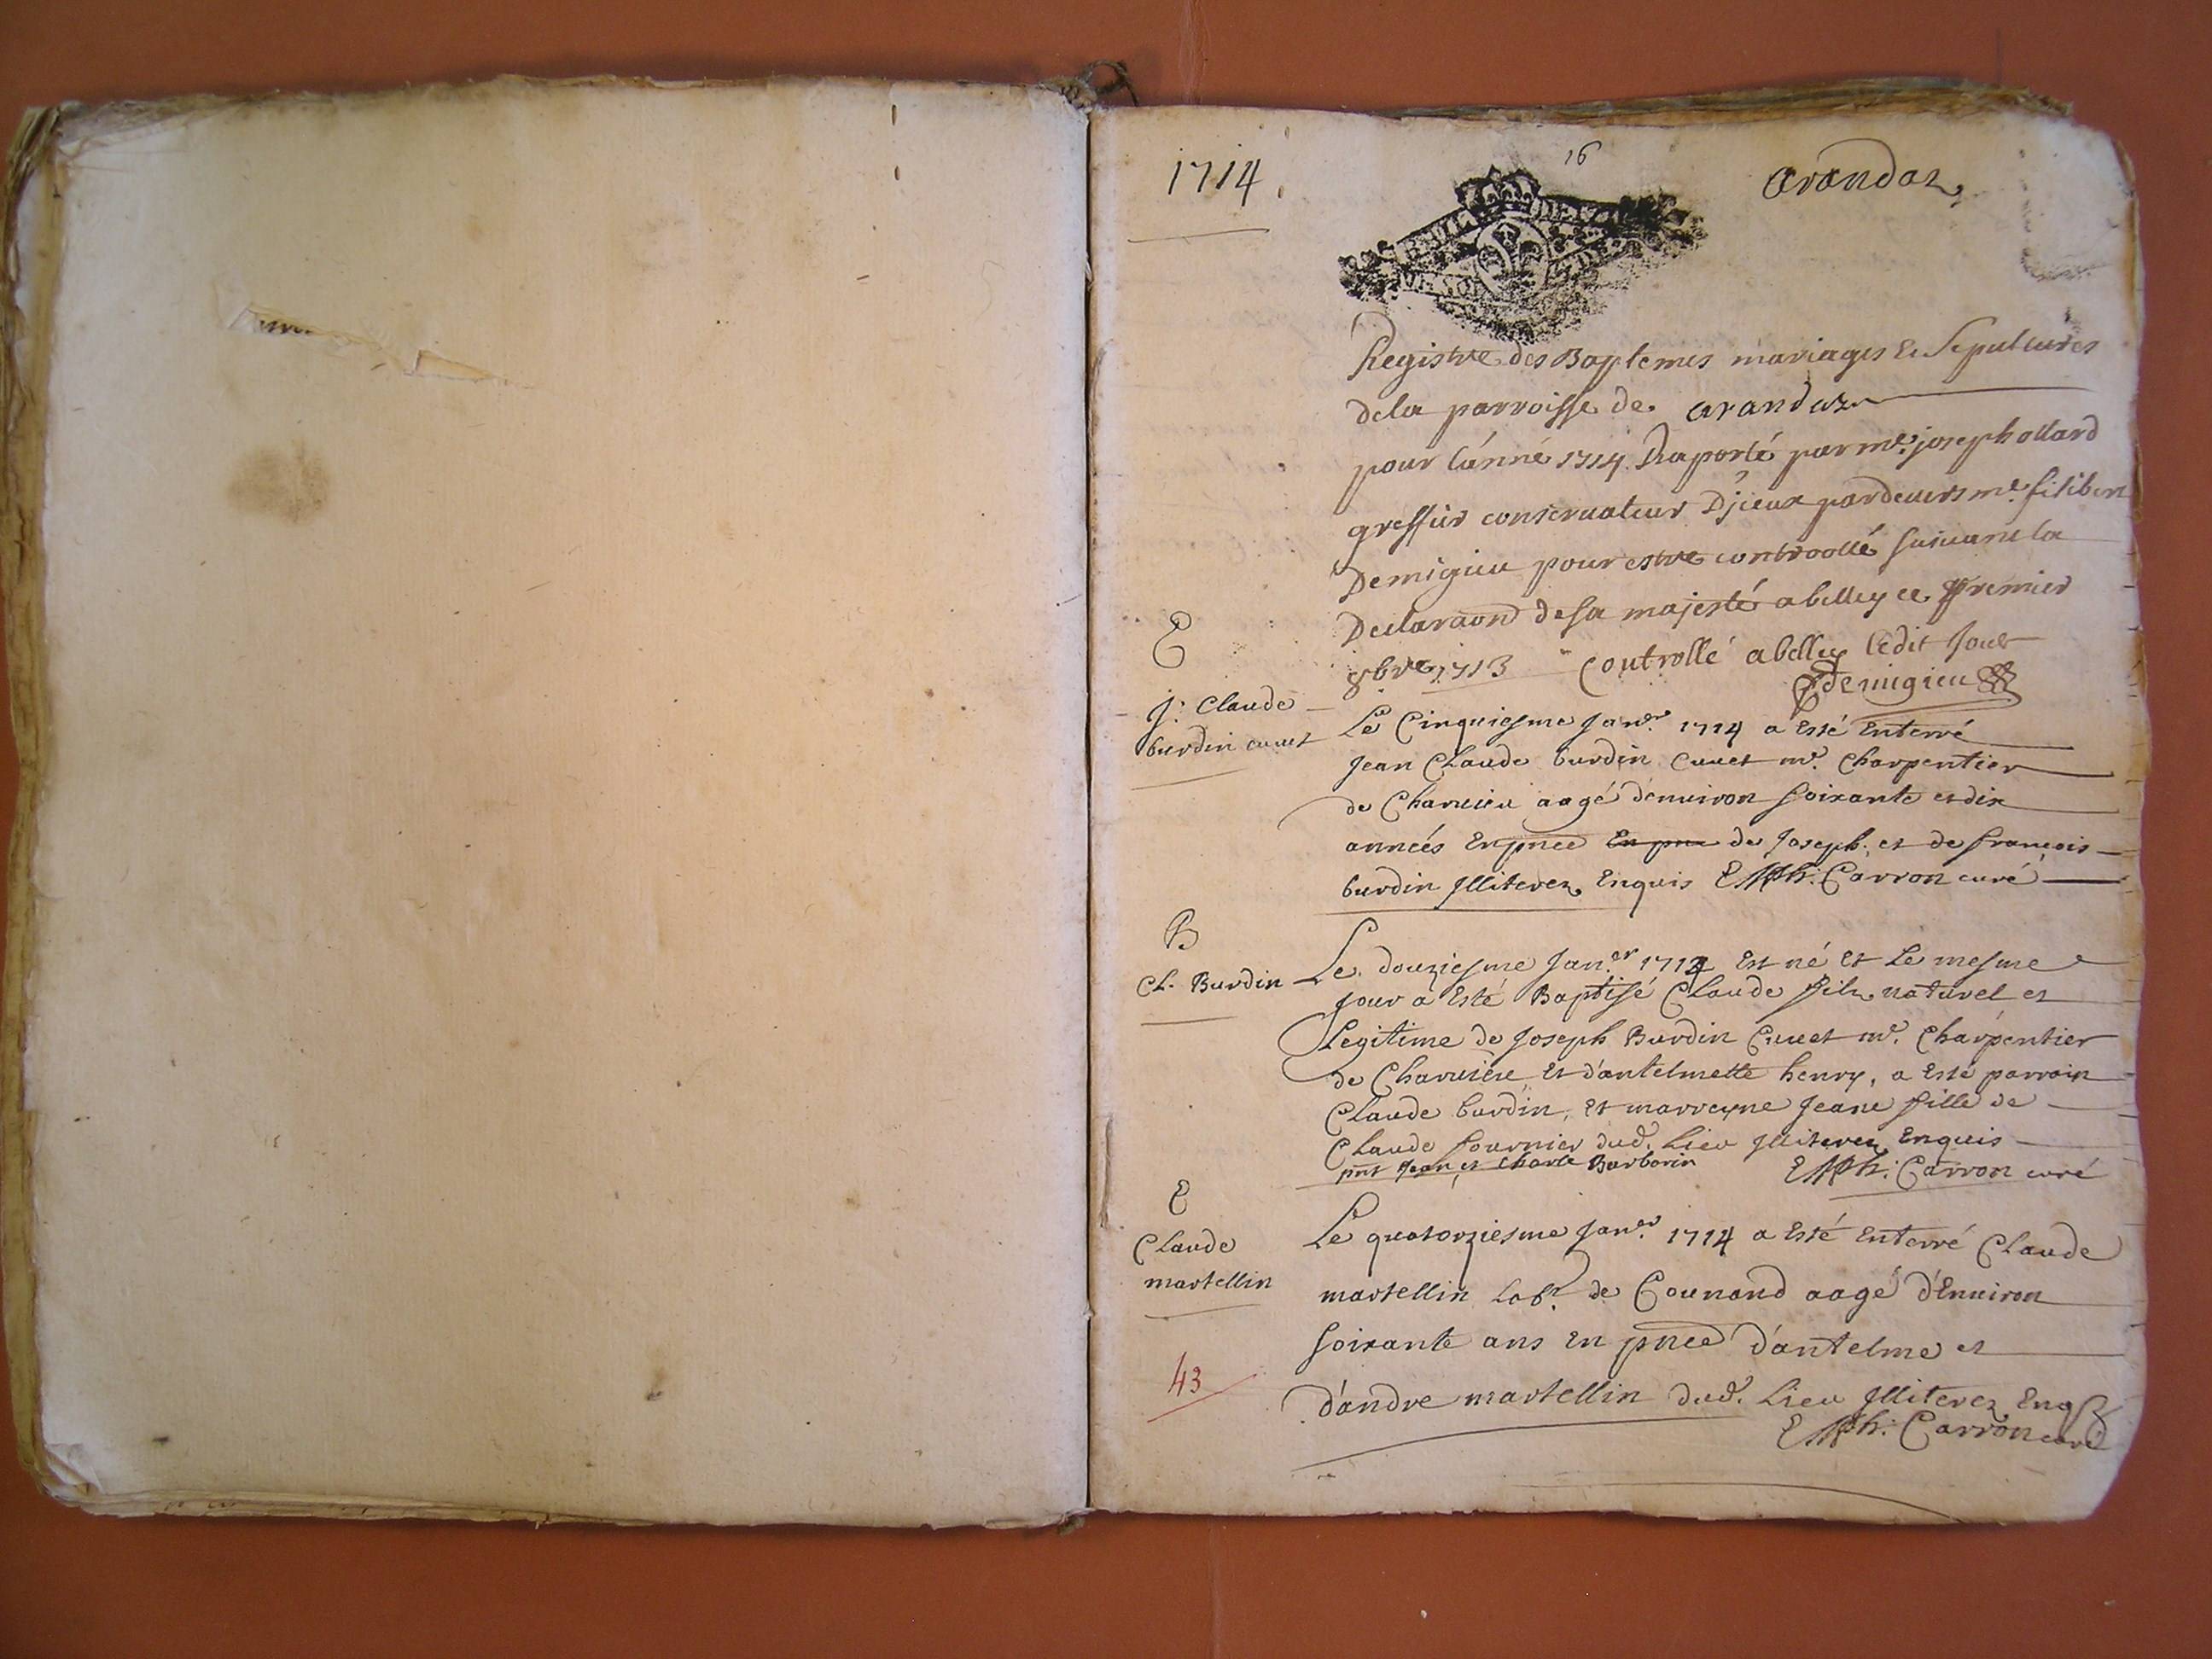 1714
16
Arandaz
Registre des Baptemes mariages Et Sepultures
de la parroisse de Arandaz
pour l'anné 1714 Raporté par me. joseph ollard
greffier conservateur D'jieux pardevers me. filibert
Demigieu pour estre controollé suivant la
Declaraon de sa majesté a belley ce premier
8bre 1713 Controllé a belley ledit Jour
Demigieu
E
J: Claude
burdin cuuet
Le Cinquiesme Janer. 1714 a Esté Enterré
Jean Claude burdin Cuuet me. Charpentier
de Charuieu aagé d'enuiron soixante et dix
années En pnce En pnce de Joseph. et de francois
burdin Illiterez Enquis EMph: Carron curé
B
Cl. Burdin
Le douziesme Janer. 1714 Est né Et Le mesme
Jour a Esté Baptisé Claude filz naturel et
Legitime de Joseph Burdin Cuuet me. Charpentier
de Charuieu Et d'antelmette henry, a Esté parrain
Claude burdin, Et marreyne Jeane fille de
Claude fournier dud. Lieu Illiterez Enquis
pnt Jean et Charle Barbarin EMph: Carron curé
E
Claude
martellin
Le quatorziesme Janer. 1714 a Esté Enterré Claude
martellin Labr. de Counand aagé d'Enuiron
soixante ans En pnce d'antelme et
d'andre martellin dud. Lieu Illiterez Enq
EMph: Carron curé
43